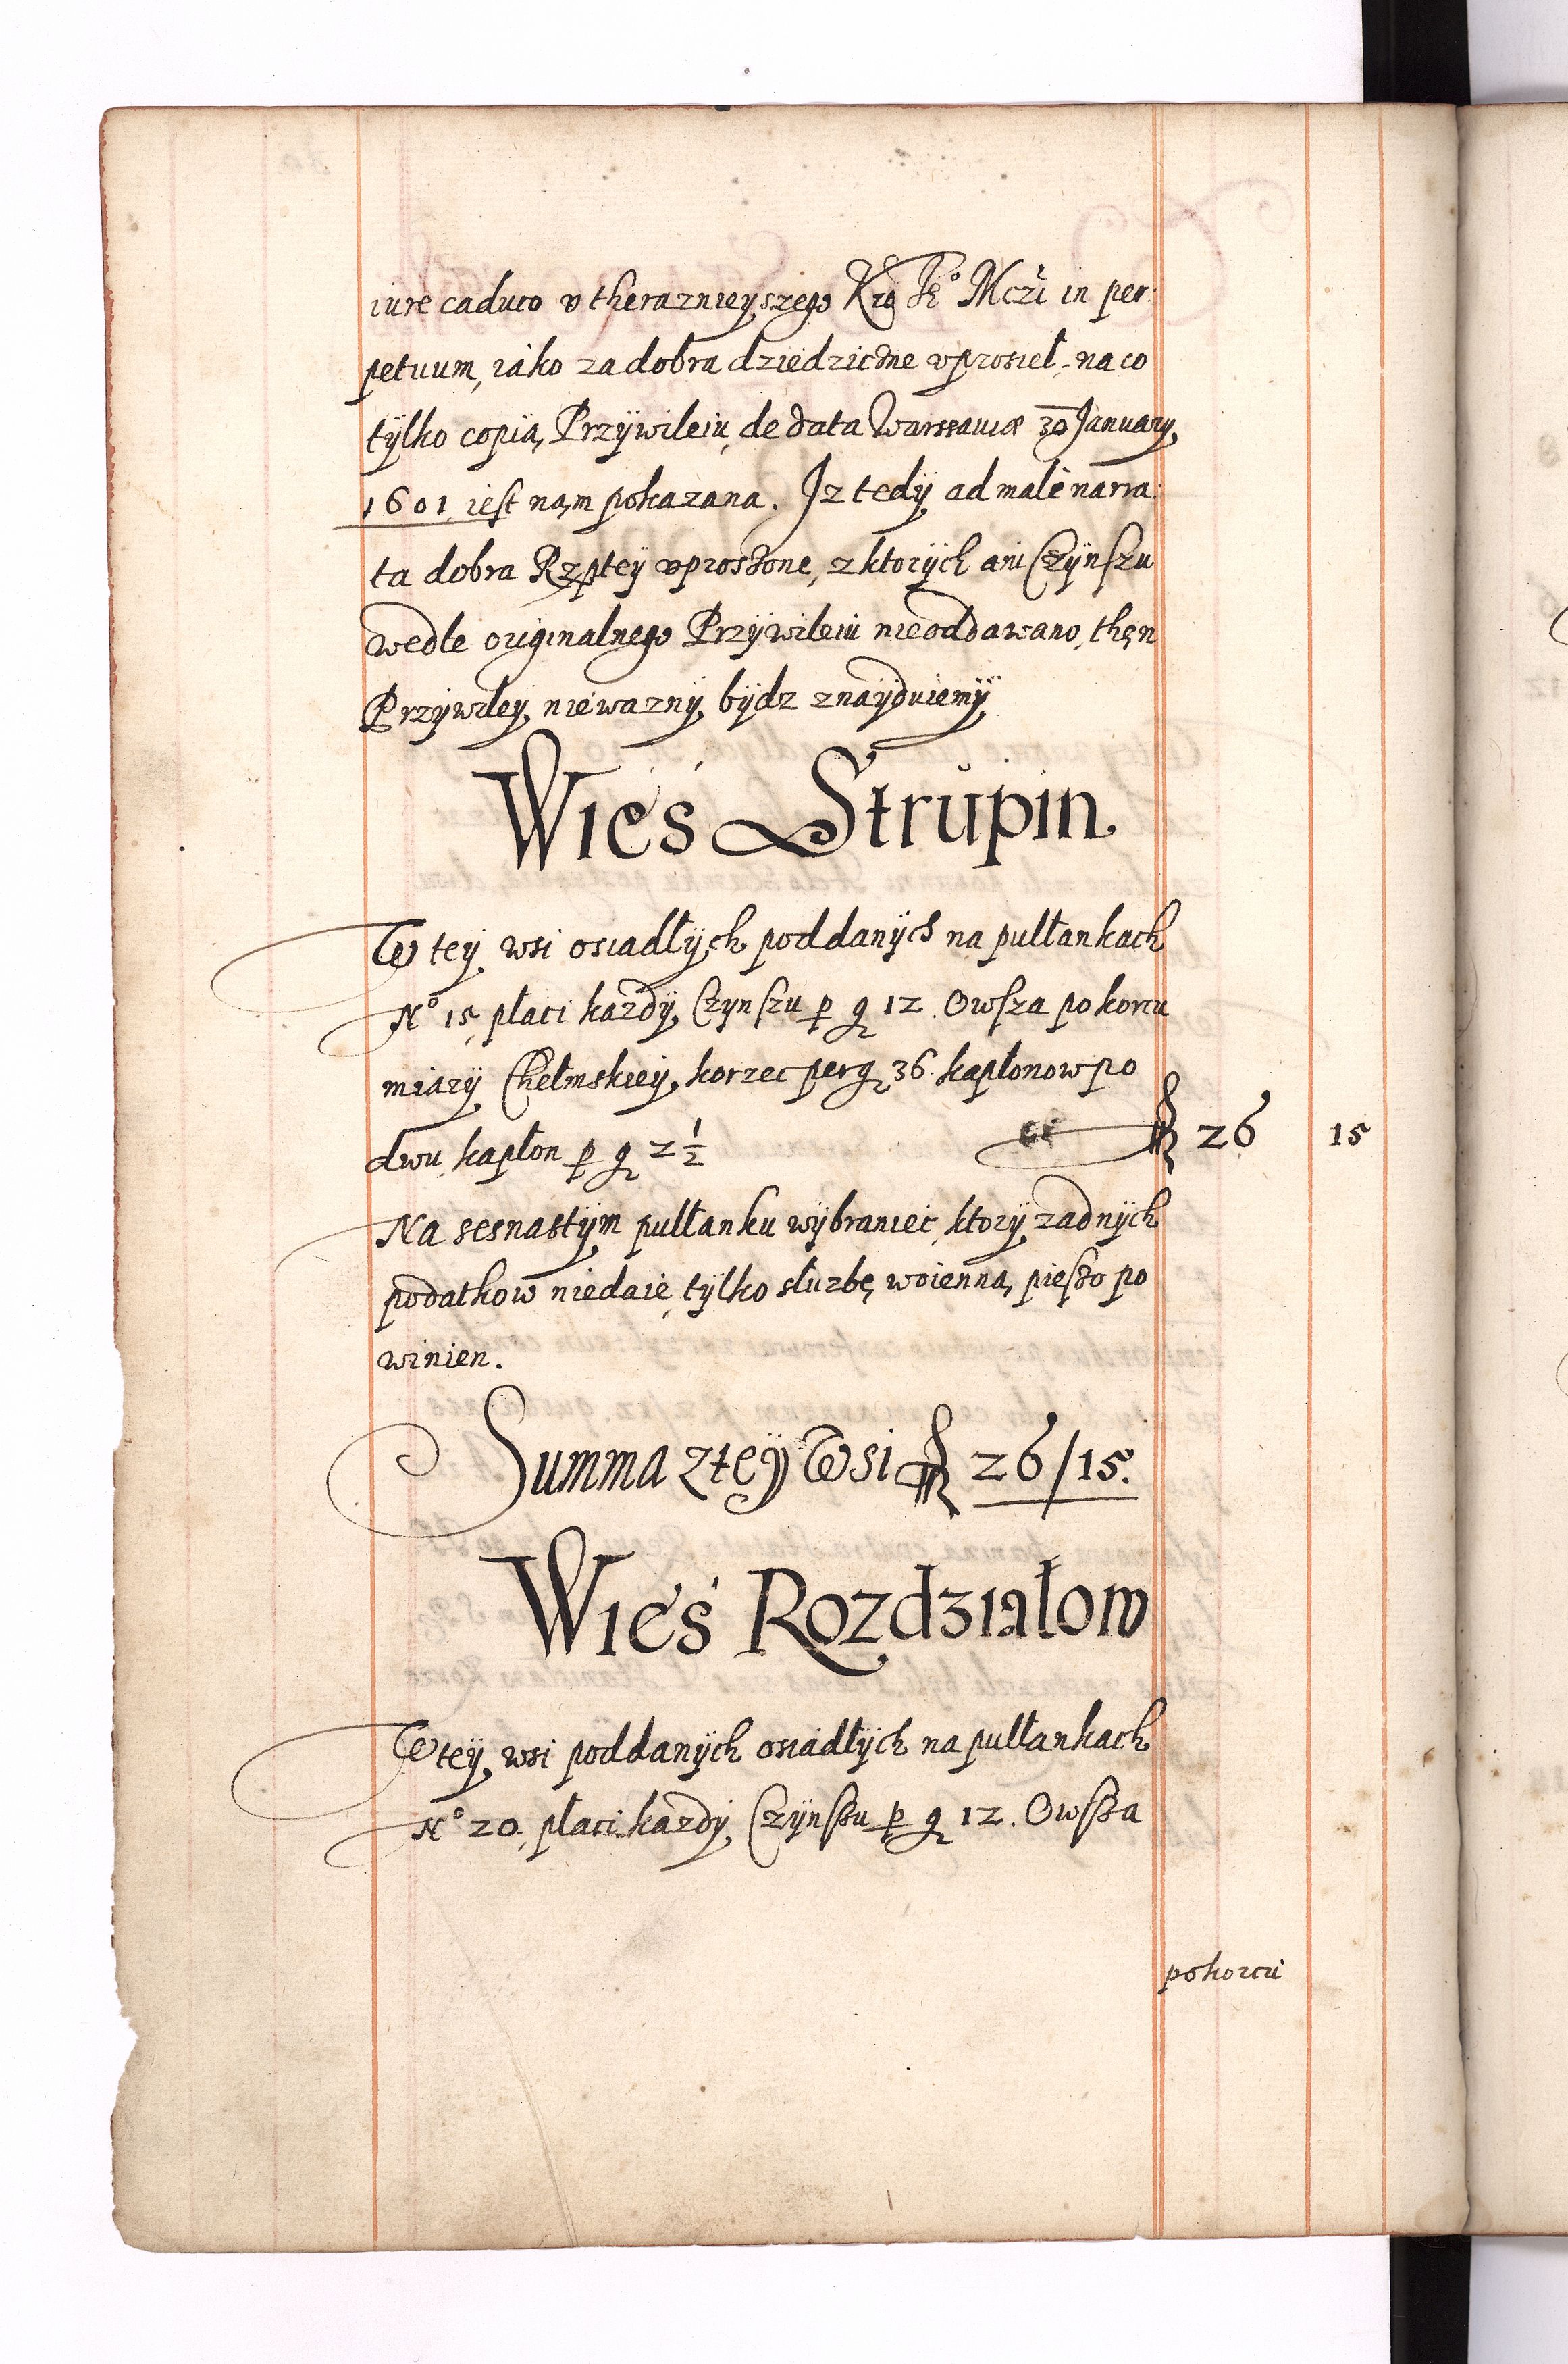 iure caduco v theraznieyszego Kro Je° Mczi in per:
petuum, iako za dobra dziedziczne vprosieł, na co
tylko copia, Przÿwileiu, de data Warssauiæ 30 January,
1601 iest nąm pokazana. Jz tedÿ ad male narra:
ta dobra Rzptey vproszone, z ktorÿch ani Czÿnszu
wedle originalnego Przÿwileiu nieoddawano, thęn
Przÿwiley niewaznÿ bÿdz znaÿduiemÿ
Wieś Strupin
W teÿ wsi osiadłÿch poddanÿch na pułłankach
N° 15, płaci kazdÿ Czÿnszu p g 12. Owsza po korcu
miarÿ Chełmskieÿ, korzec per g 36. kapłonow po
dwu, kapłon p g 2½ 26 15
Na sesnastÿm pułłanku wÿbraniec, ktorÿ zadnÿch
podatkow niedaie, tÿlko słuzbę woienną, pieszo po
winien.
Summa z teÿ Wsi 26/15.
Wieś Rozdziałow
W teÿ wsi poddanÿch osiadłÿch na pułłankach
N° 20, płaci kazdÿ Czÿnszu p g 12. Owsza
po korcu